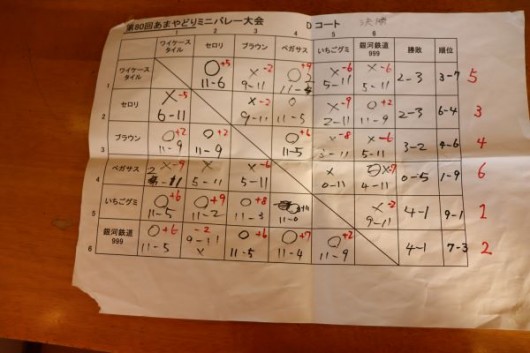 第80回あまやどりミニバレー大会 Dコート 決勝
1 2 3 4 5 6
ワイケースタイル セロリ ブラウン ペガサス いちごグミ 銀河鉄道999 勝敗 順位
1 ワイケースタイル ○+5 ×-2 ○+9 ×-6 ×-6
11-6 9-11 5-11 5-11 2-3 3-7 5
2 セロリ ×-5 ×-2 ○ ×-9 ○+2
6-11 9-11 11-5 2-11 11-9 2-3 6-4 3
3 ブラウン ○+2 ○+2 ○+6 ×-8 ×-6
11-9 11-9 11-5 5-11 3-2 4-6 4
4 ペガサス ×-9 × ×-6 × ×-7
2-11 5-11 5-11 0-11 4-11 0-5 1-9 6
5 いちごグミ ○+6 ○+9 ○+8 ×-2
11-5 11-2 11-0 9-11 4-1 9-1 1
6 銀河鉄道999 ○+6 -2 ○+6 ○+7 ○+2
11-5 9-11 × 11-5 11-4 11-9 4-1 7-3 2